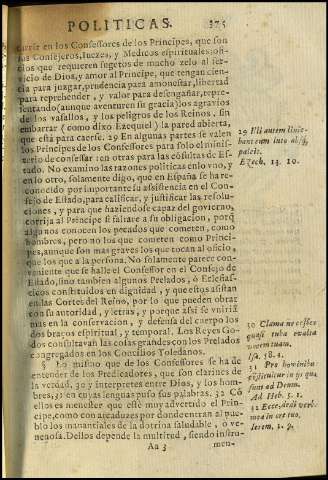 POLITICAS. 375
currir en los Confessores de los Principes, que son
sus Consejeros, Iuezes, y Medicos espirituales: ofi-
cios que requieren sugetos de mucho zelo al ser-
vicio de Dios, y amor al Principe, que tengan cien-
cia para juzgar, prudencia para amonestar, libertad
para reprehender, y valor para desengañar, repre-
sentando (aunque aventuren su gracia) los agravios
de los vasallos, y los peligros de los Reinos, sin
embarrar (como dixo Ezequiel) la pared abierta,
que está para caerse. 29 En algunas partes se valen
los Principes de los Confessores para solo el minis-
terio de confessar: en otras para las cósultas de Es-
tado. No examino las razones politicas en lo vno, y
en lo otro, solamente digo, que en España se ha re-
conocido por importante su assistencia en el Con-
sejo de Estado, para calificar, y justificar las resolu-
ciones, y para que haziendose capaz del govierno,
corrija al Principe si faltare a su obligacion, porq̃
algunos conocen los pecados que cometen, como
hombres, pero no los que cometen como Princi-
pes, aunque son mas graves los que tocan al oficio,
que los que a la persona. No solamente parece con-
veniente que se halle el Confessor en el Consejo de
Estado, sino tambien algunos Prelados, ò Eclesias-
ticos constituidos en dignidad, y que estos assistan
en las Cortes del Reino, por lo que pueden obrar
con su autoridad, y letras, y porque assi se vnirià
mas en la conservacion, y defensa del cuerpo los
dos braços espiritual, y temporal. Los Reyes Go-
dos consultavan las cosas grandes con los Prelados
congregados en los Concilios Toledanos.
§ Lo mismo que de los Confessores se ha de
entender de los Predicadores, que son clarines de
la verdad, 30 y interpretes entre Dios, y los hom-
bres, 31 en cuyas lenguas puso sus palabras. 32 Có
ellos es menester que esté muy advertido el Prin-
cipe, como con arcaduzes por donde entran al pue-
blo los manantiales de la dotrina saludable, o ve-
nenosa. Dellos depende la multitud, siendo instru-
Aa 3 men-
29 Illi autem linie-
bant eum luto absq́;
paleis.
Ezech. 13. 10.
30 Clama ne cesses
quasi tuba exalta
vocem tuam.
Isa. 58. 1.
31 Pro hominibus
constituitur in ijs quæ
sunt ad Deum.
Ad Heb. 5. 1.
32 Ecce dedi verba
mea in ore tuo,
Ierem. 1. 9.